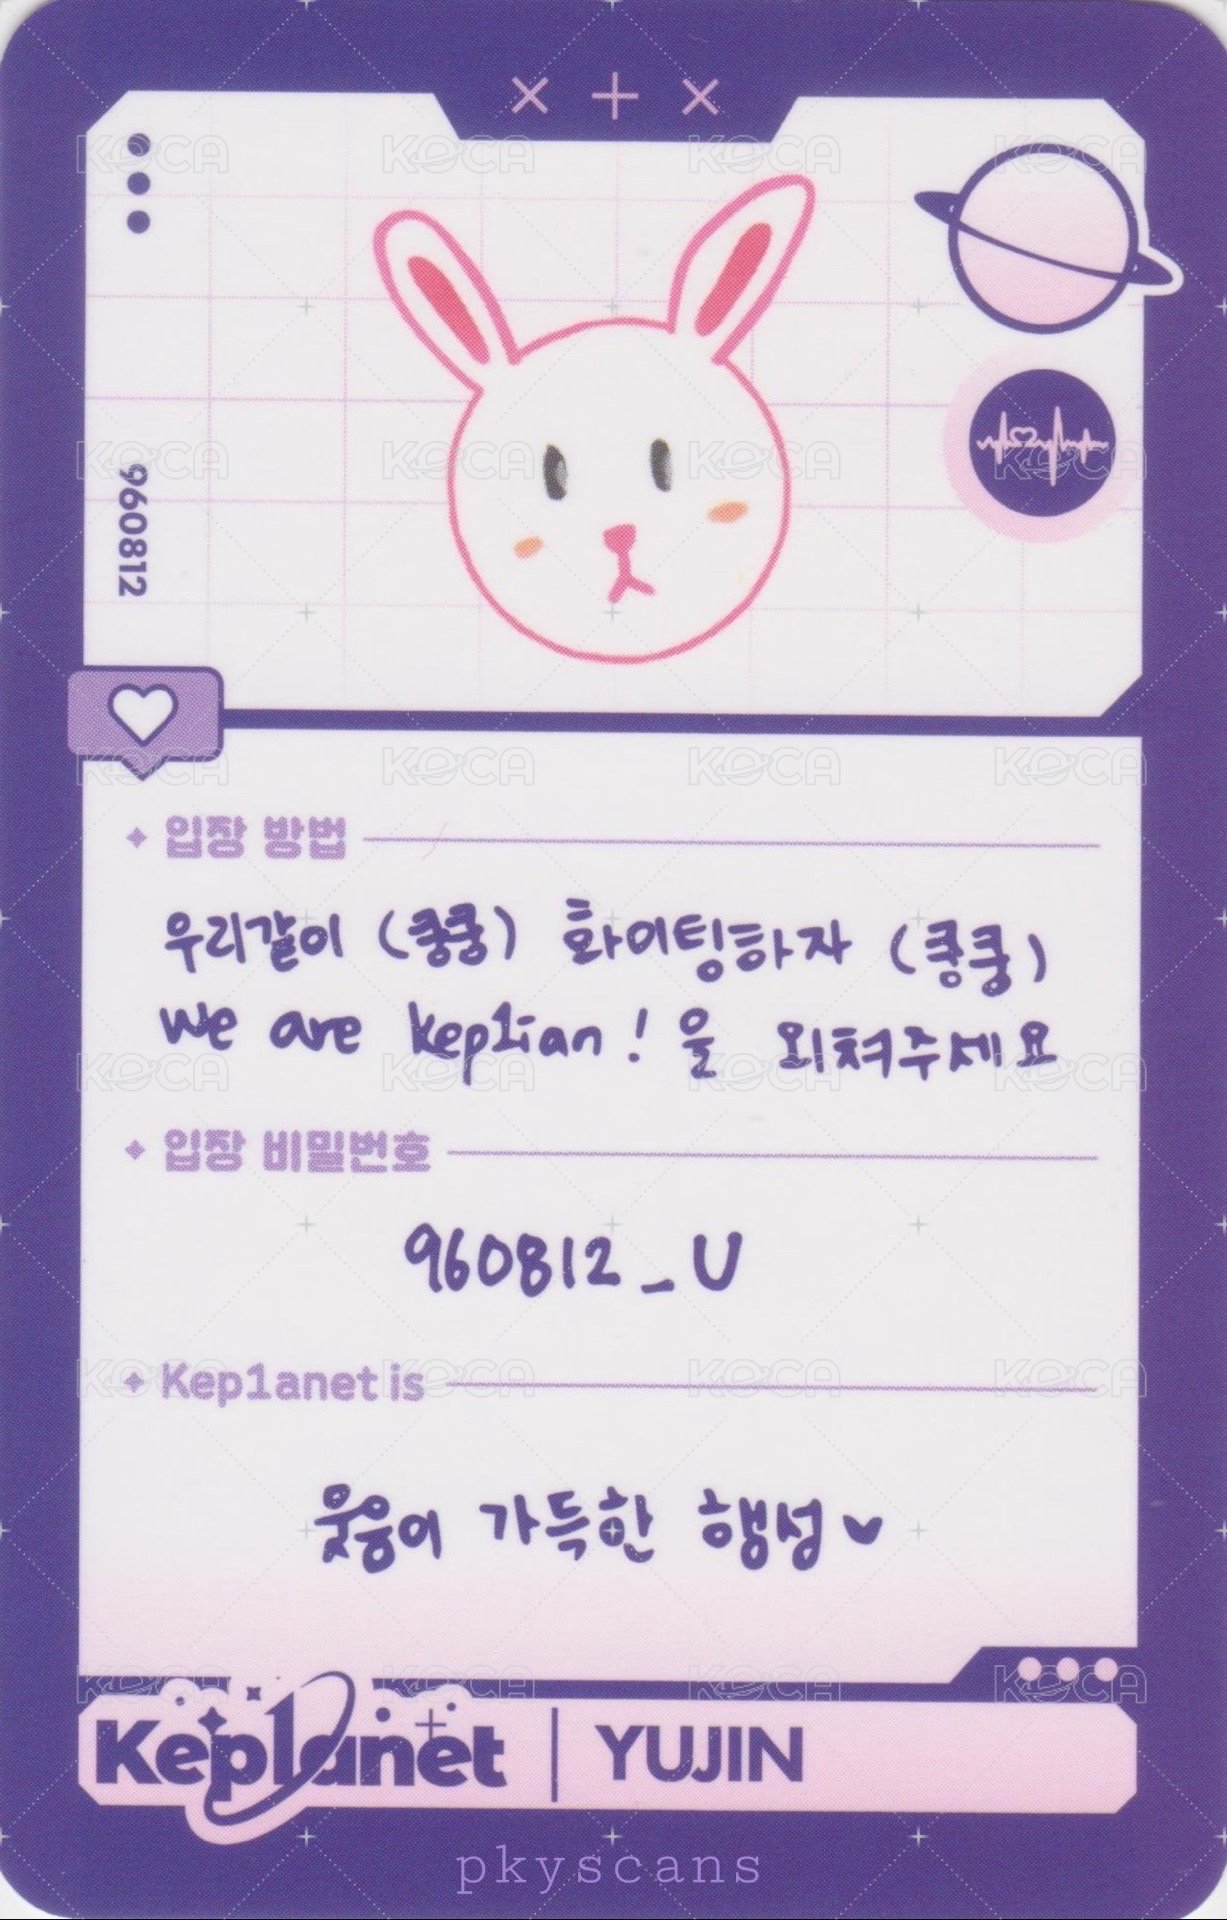 960812
입장 방법
우리같이 (쿵쿵) 화이팅하자 (쿵쿵)
we are kep1ian ! 을 외쳐주세요
입장 비밀번호
960812_U
Kep1anet is
웃음이 가득한 행성
Kep1anet | YUJIN
pkyscans
KOCA